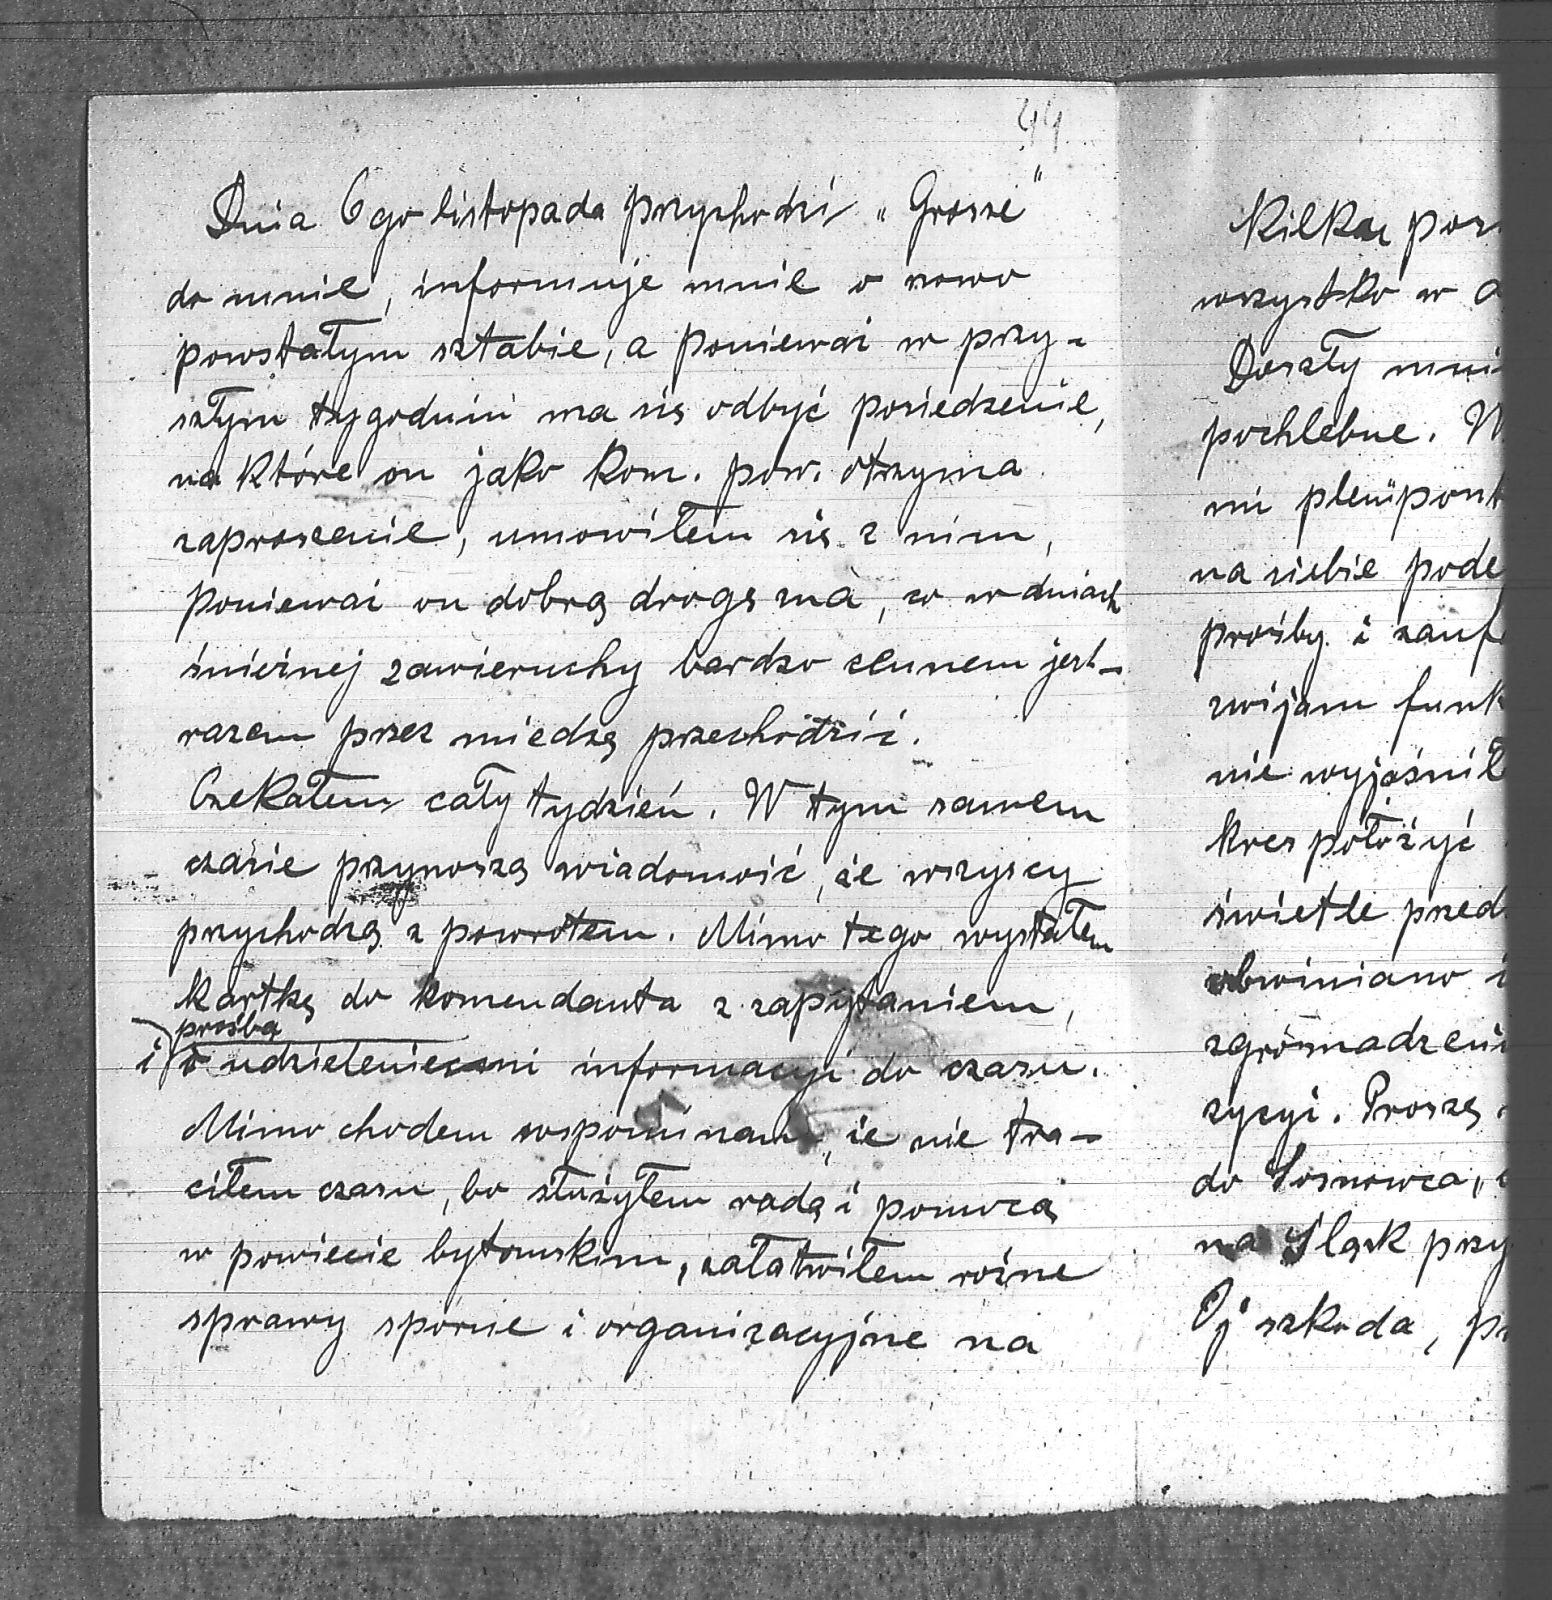 44
Dnia 6go listopada przychodzi „Grosze”
do mnie, informuje mnie o nowo
powstałym sztabie, a ponieważ w przy-
szłym tygodniu ma się odbyć posiedzenie,
na które on jako kom. pow. otrzyma
zaproszenie, umowiłem się z nim,
ponieważ on dobrą drogę zna, co w dniach
śnieżnej zawieruchy bardzo cennem jest –
razem przez miedzę przechodzić.
Czekałem cały tydzień. W tym samem
czasie przynoszą wiadomość, że wszyscy
przychodzą z powrotem. Mimo tego wysłałem
kartkę do komendanta z zapytaniem,
prośbą
i o udzielenie mi informacyi do czasu.
Mimochodem wspominam, że nie tra-
ciłem czasu, bo służyłem radą i pomocą
w powiecie bytomskim, załatwiłem różne
sprawy sporne i organizacyjne na
Kilka
wszystko w
Doszły
pochlebne.
mi
na siebie
prośby i
zwijam
nie wyjaśnił
kres położyć
świetle
obwiniano i
zycyi. Proszę
do Sosnowca,
na Śląsk
Oj szkoda,